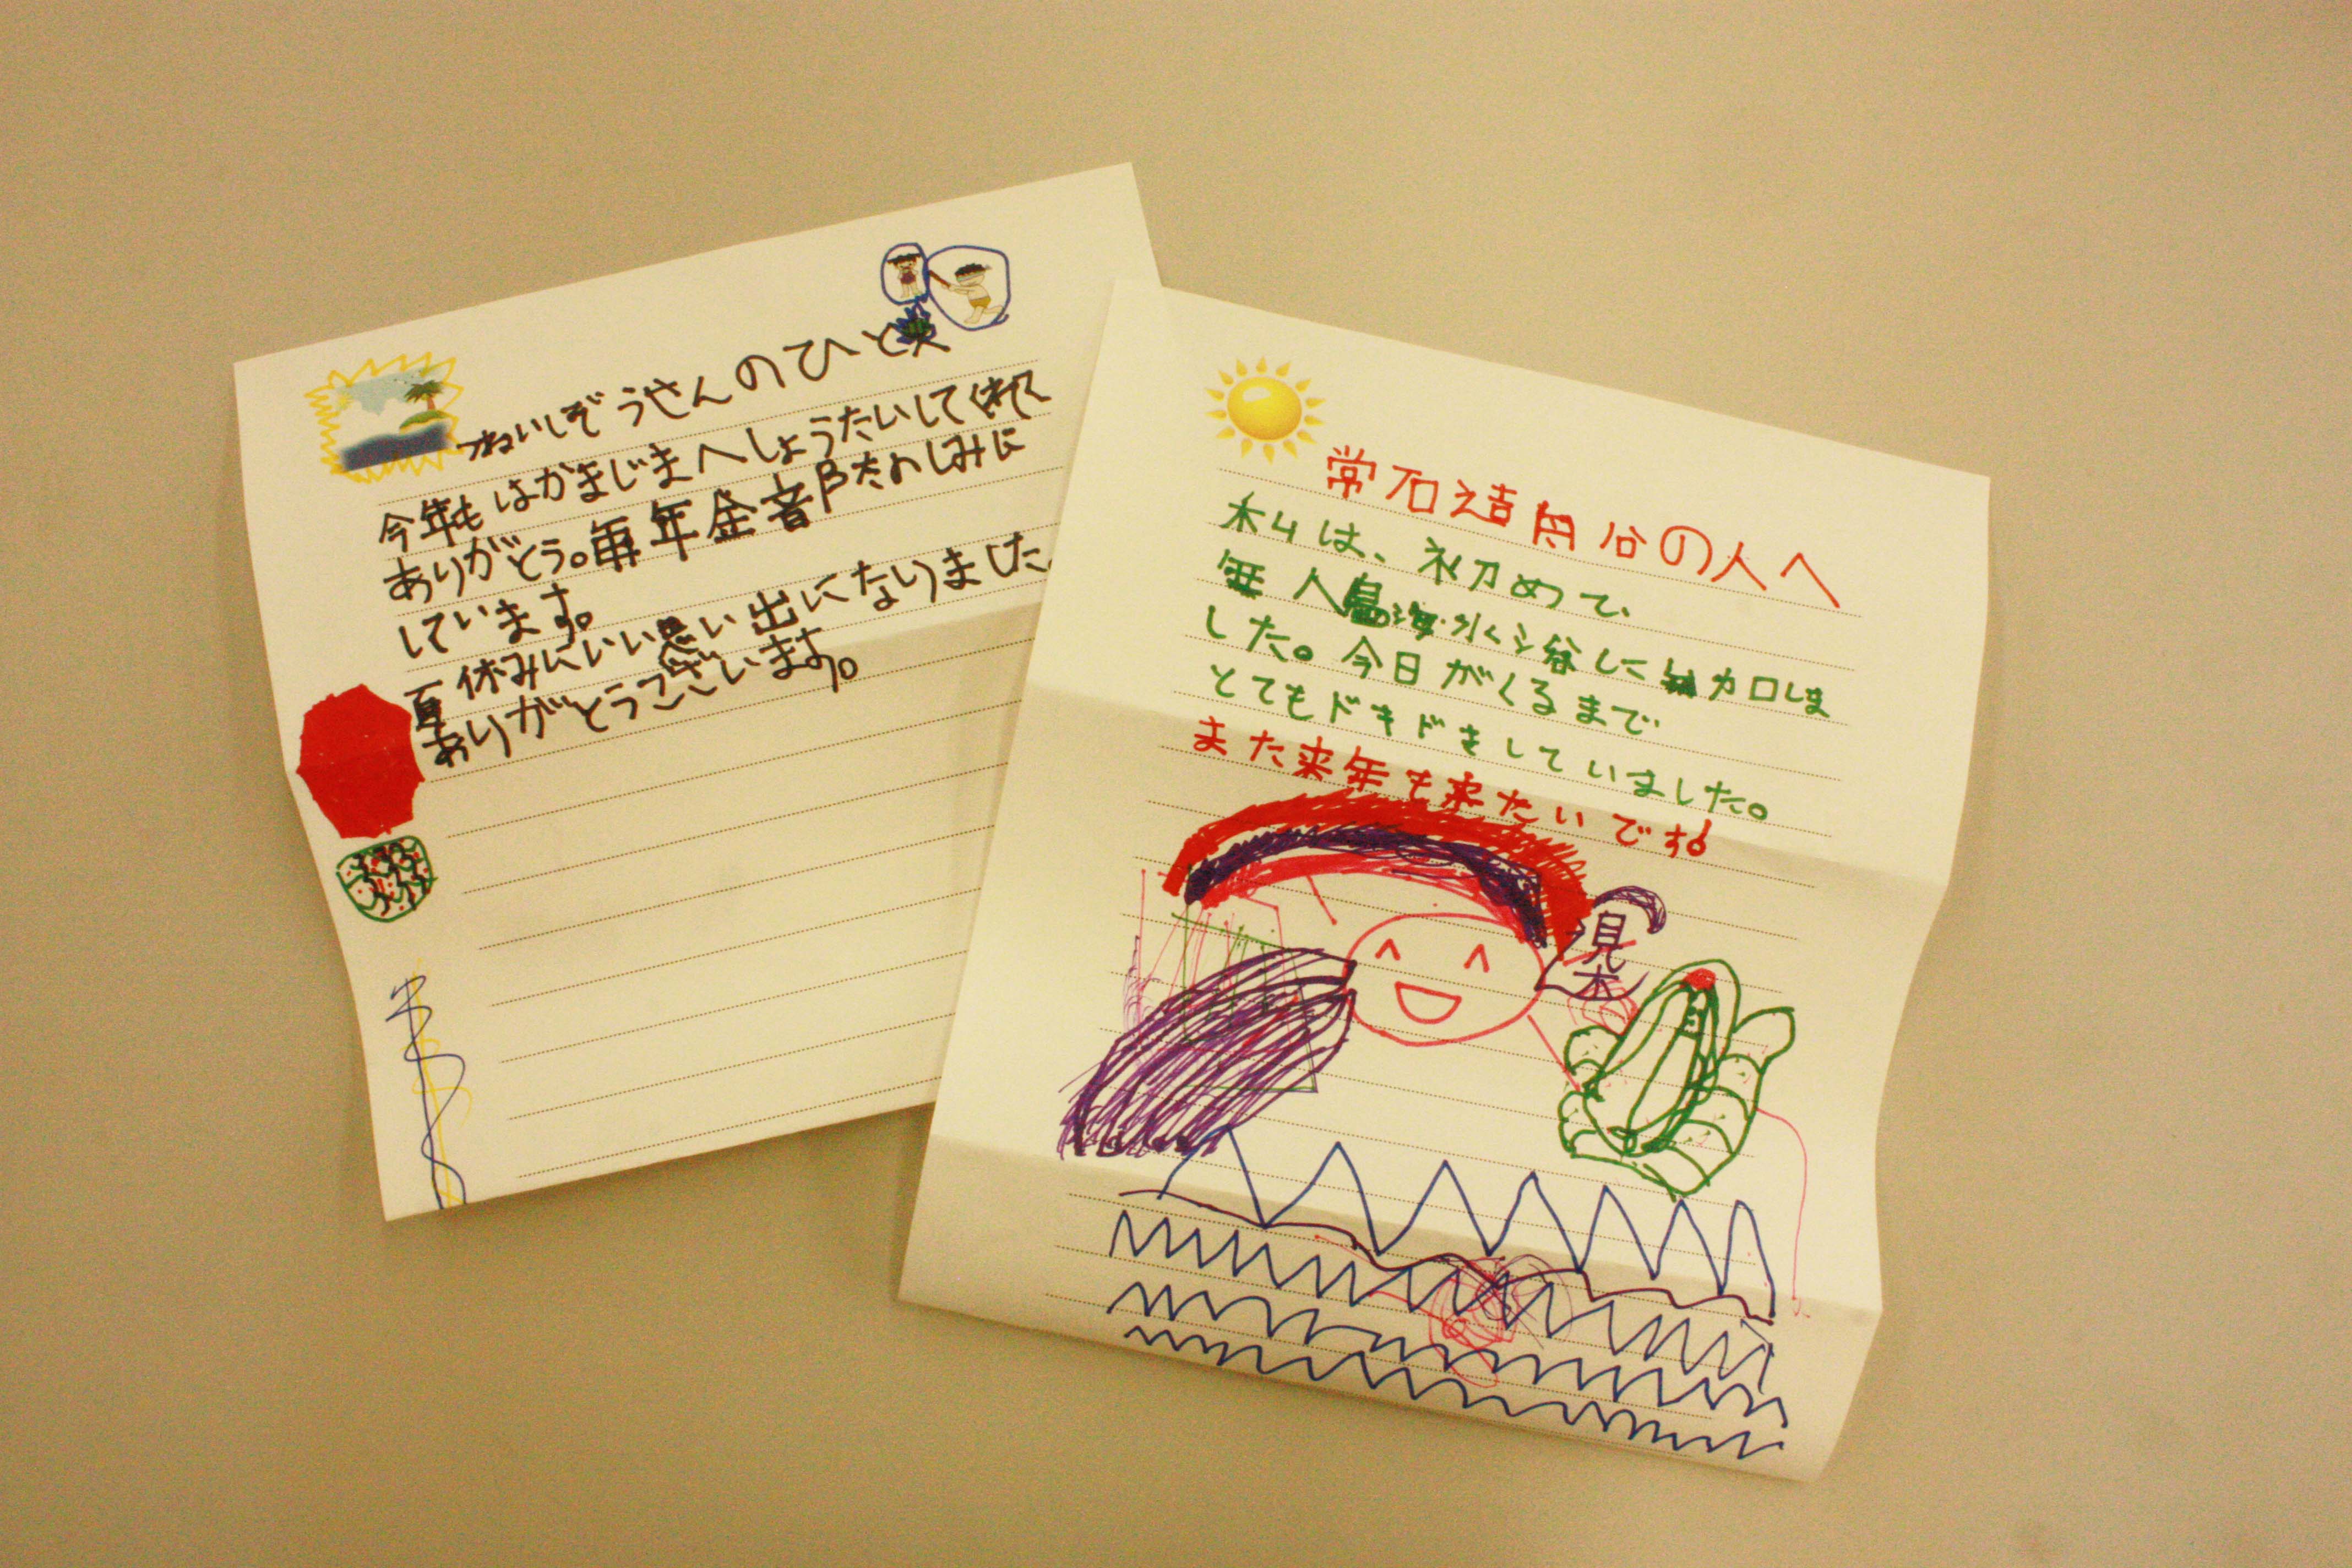 つねいしぞうせんのひと
今年もはかまじまへしょうたいしてくれて
ありがとう。毎年全音陪たのしみに
しています。
夏休みにいい思い出になりました。
ありがとうございます。
常石造船の人へ
私は、初めて、
無人島海水浴に参加しま
した。今日がくるまで
とてもドキドキしていました。
また来年も来たいです!